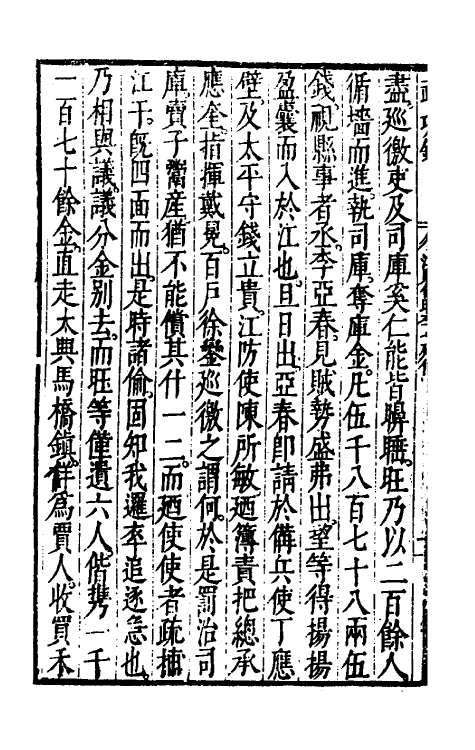 盡。巡徼吏及司庫奚仁能皆鼾睡。旺乃以二百餘人
循墻而進。執司庫。奪庫金。凡伍千八百七十八兩伍
錢。視縣事者丞。李亞春見賊勢盛弗出。望等得揚揚
盈囊而入於江也。旦日出。亞春卽請於備兵使丁應
壁。及太平守錢立貴。江防使陳所敏廼簿責把總承
應奎。指揮戴晃。百戶徐鑾巡徼之謂何。於是罰治司
庫。賣子鬻産。猶不能償其什一二。而廼使使者疏捕
江干。旣四面而出。是時諸偷。固知我邏卒追逐急也。
乃相與議。議分金別去。而旺等僅遺六人。偕携一千
一百七十餘金。直走太興馬橋鎮。佯爲賈人。收買禾